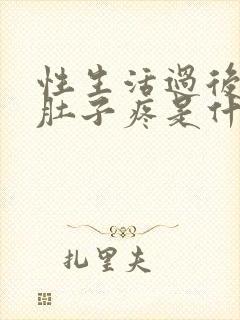 性生活過後
肚子疼是什
扎里夫